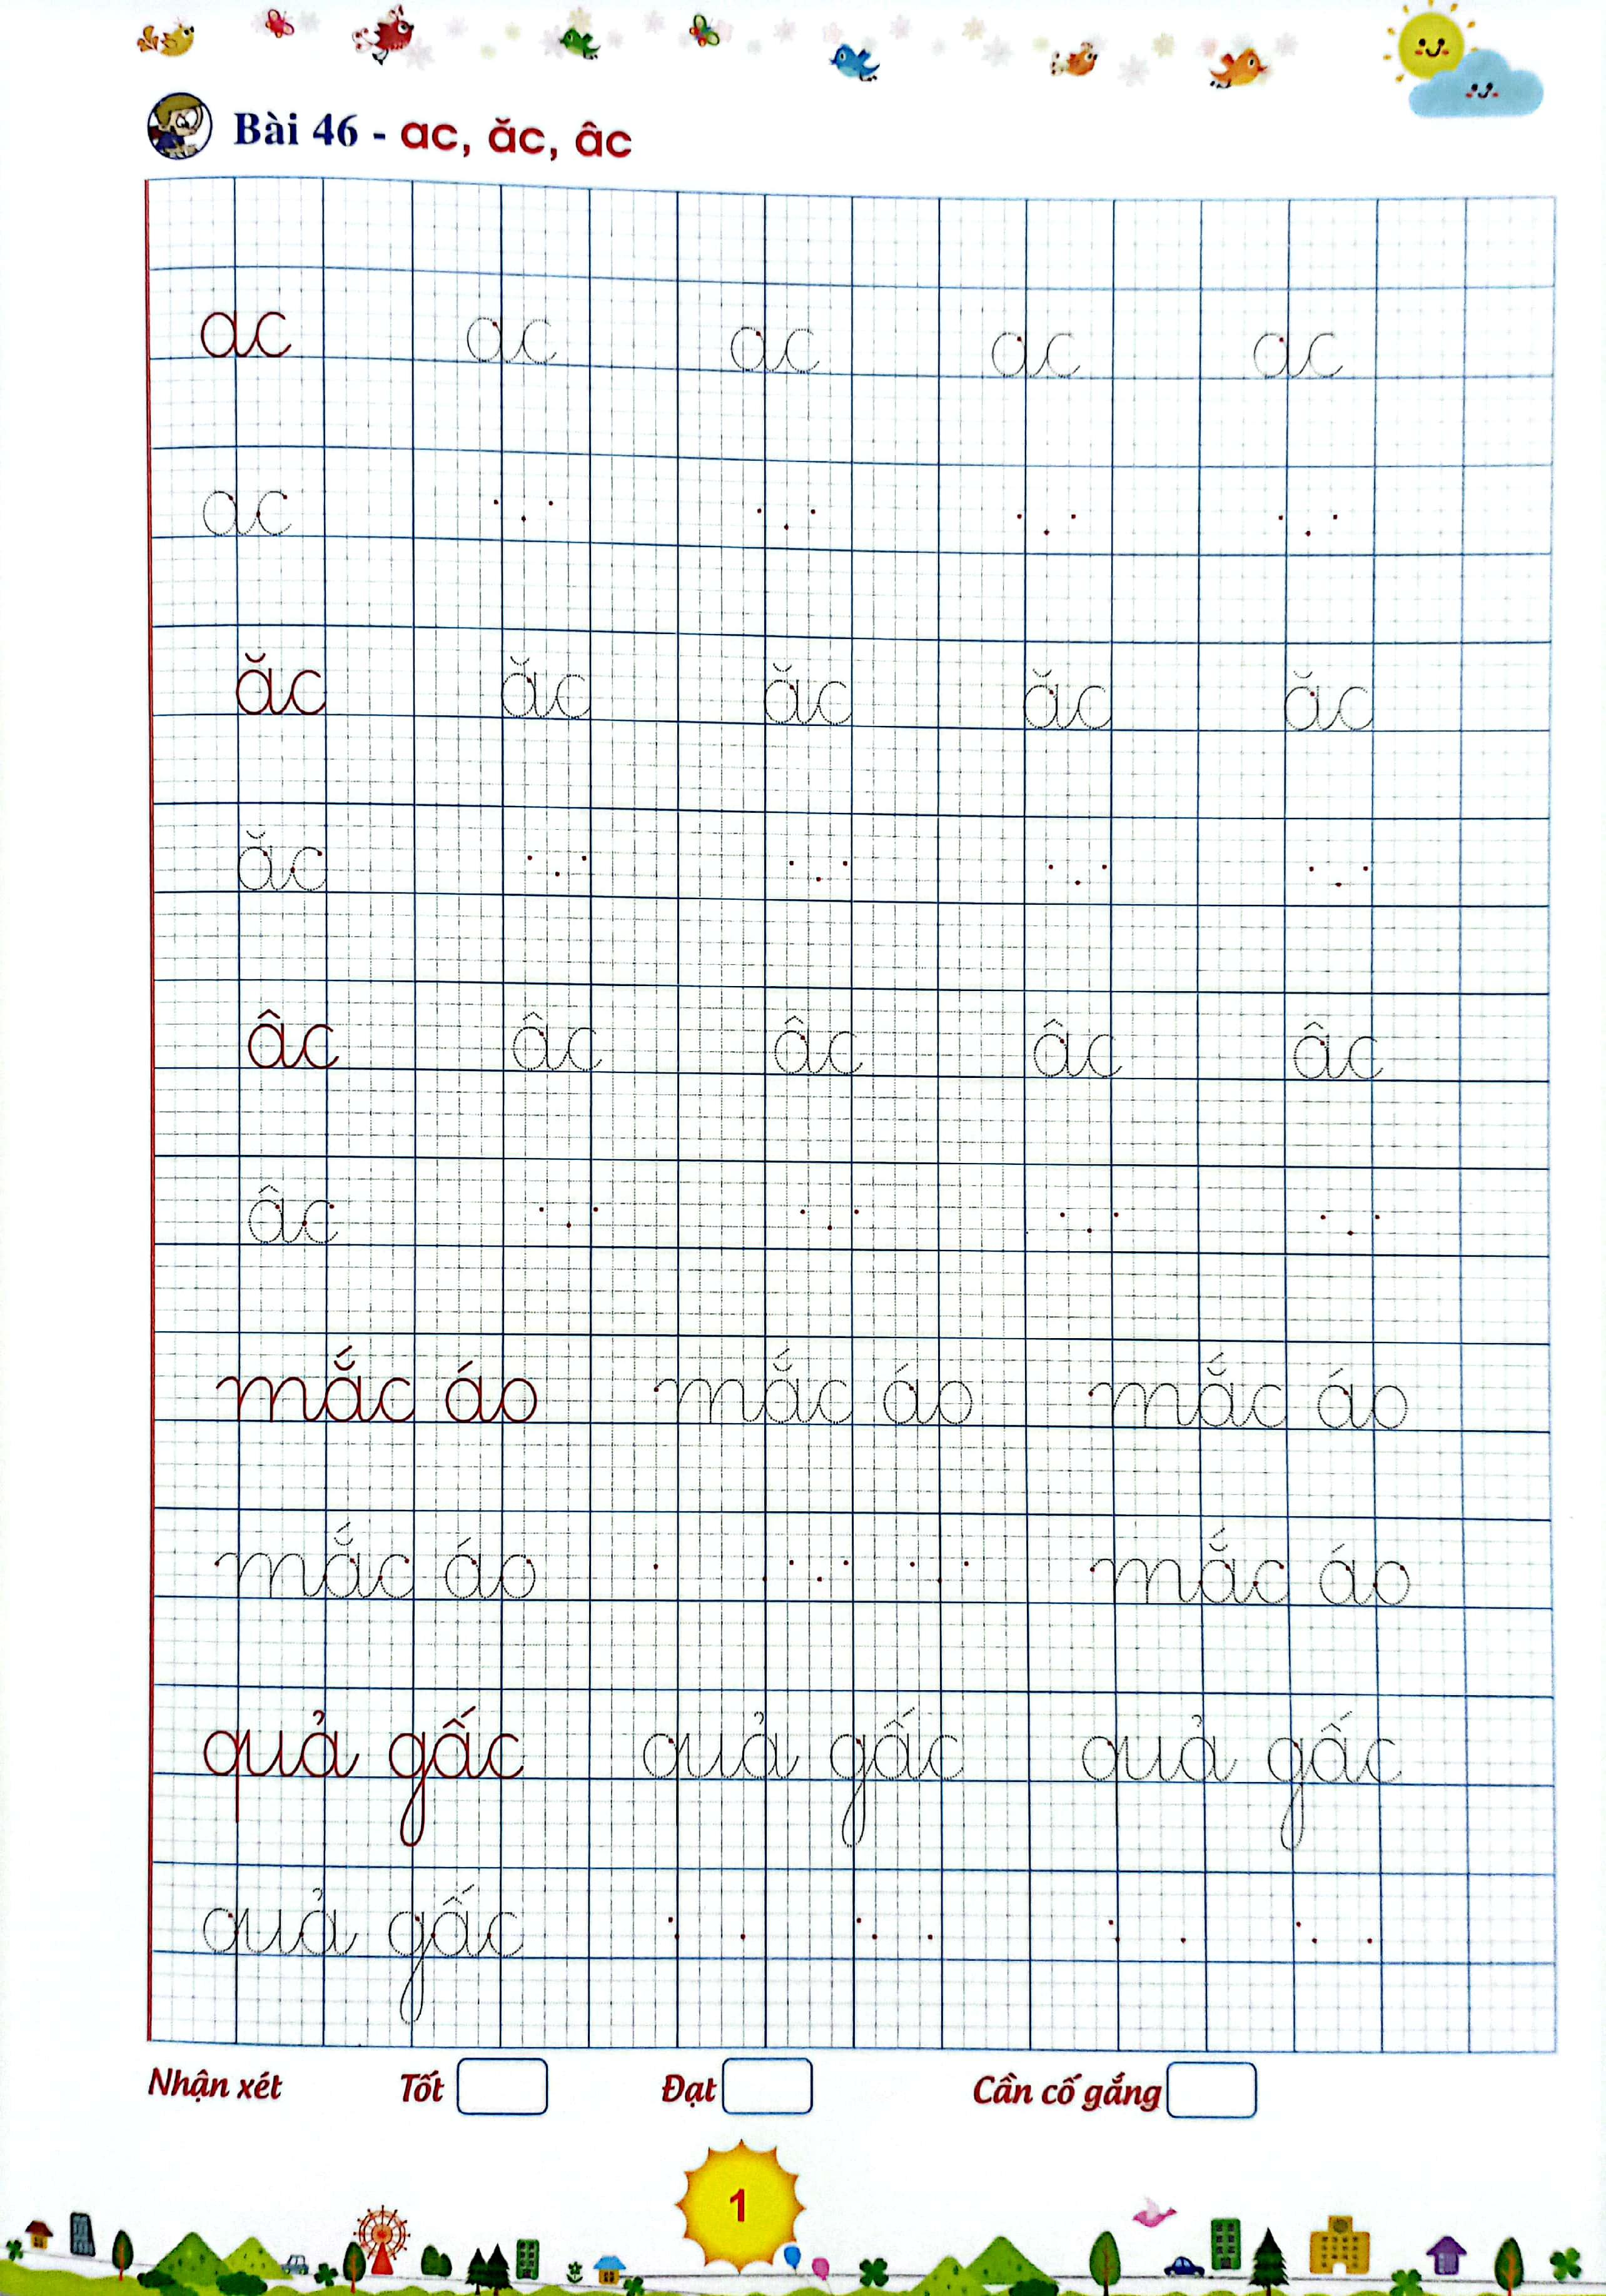 Bài 46 - ac, ăc, âc
ac ac ac ac ac
ac
ăc ăc ăc ăc ăc
ăc
âc âc âc âc âc
âc
mắc áo mắc áo mắc áo
mắc áo mắc áo
quả gấc quả gấc quả gấc
quả gấc
Nhận xét Tốt Đạt Cần cố gắng
1